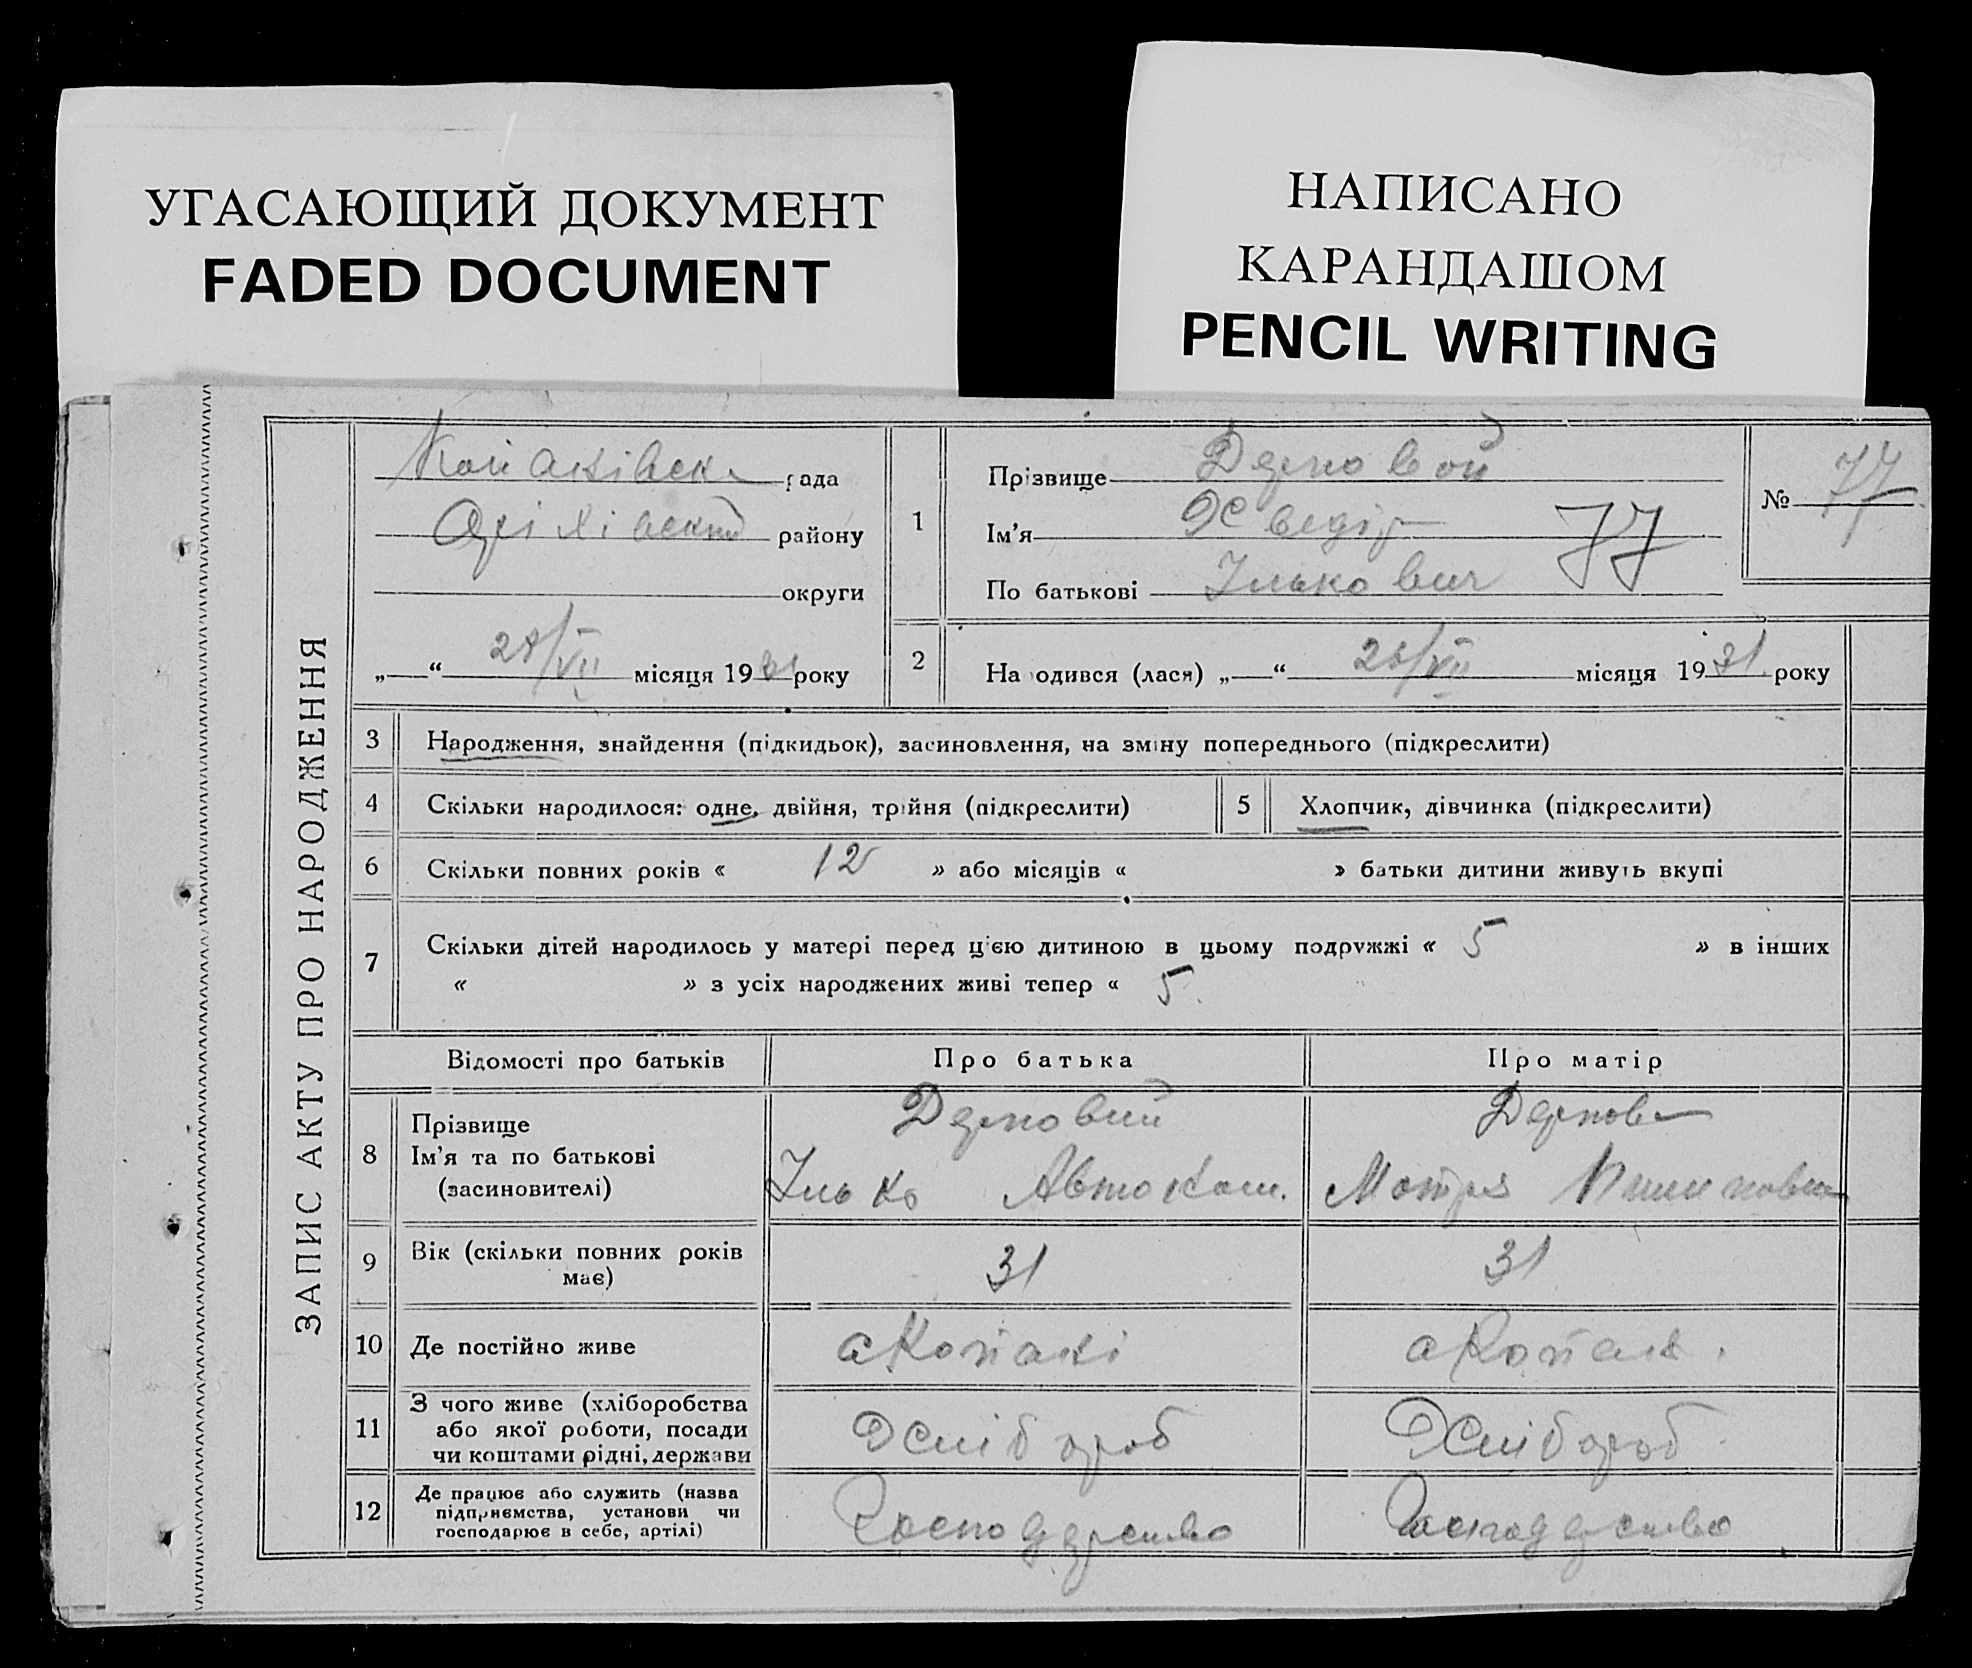 УГАСАЮЩИЙ ДОКУМЕНТ
FADED DOCUMENT
НАПИСАНО
КАРАНДАШОМ
PENCIL WRITING
ЗАПИС АКТУ ПРО НАРОДЖЕННЯ
рада
району
округи
„ “ 28/VII місяця 1931 року
1
Прізвище
Ім’я Хведір
По батькові Ількович
77
№ 77
2 На одився (лася) „ “ місяця 1931 року
3 Народження, знайдення (підкидьок), засиновлення, на зміну попереднього (підкреслити)
4 Скільки народилося: одне, двійня, трійня (підкреслити)
5 Хлопчик, дівчинка (підкреслити)
6 Скільки повних років « 12 » або місяців « » батьки дитини живуть вкупі
7 Скільки дітей народилось у матері перед цією дитиною в цьому подружжі « 5 » в інших
« » з усіх народжених живі тепер « 5
Відомості про батьків Про батька Про матір
8 Прізвище
Ім’я та по батькові Ілько Мотря
(засиновителі)
9 Вік (скільки повних років має) 31 31
10 Де постійно живе с Копані
11 З чого живе (хліборобства
або якої роботи, посади Хлібороб Хлібороб
чи коштами рідні, держави
12 Де працює або служить (назва
підприємства, установи чи Господарство Господарство
господарює в себе, артілі)